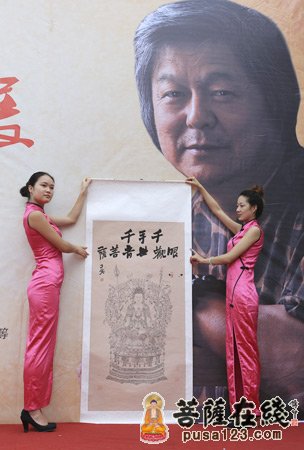 千手千
眼觀世音菩薩
等
菩薩在綫
pusa123.com